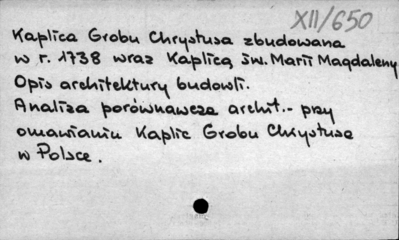 XII/650
Kaplica Grobu Chrystusa zbudowana
w r. 1738 wraz Kaplicą św. Marii Magdaleny
Opis architektury budowli.
Analiza porównawcza archit. - przy
omawianiu Kaplic Grobu Chrystusa
w Polsce.